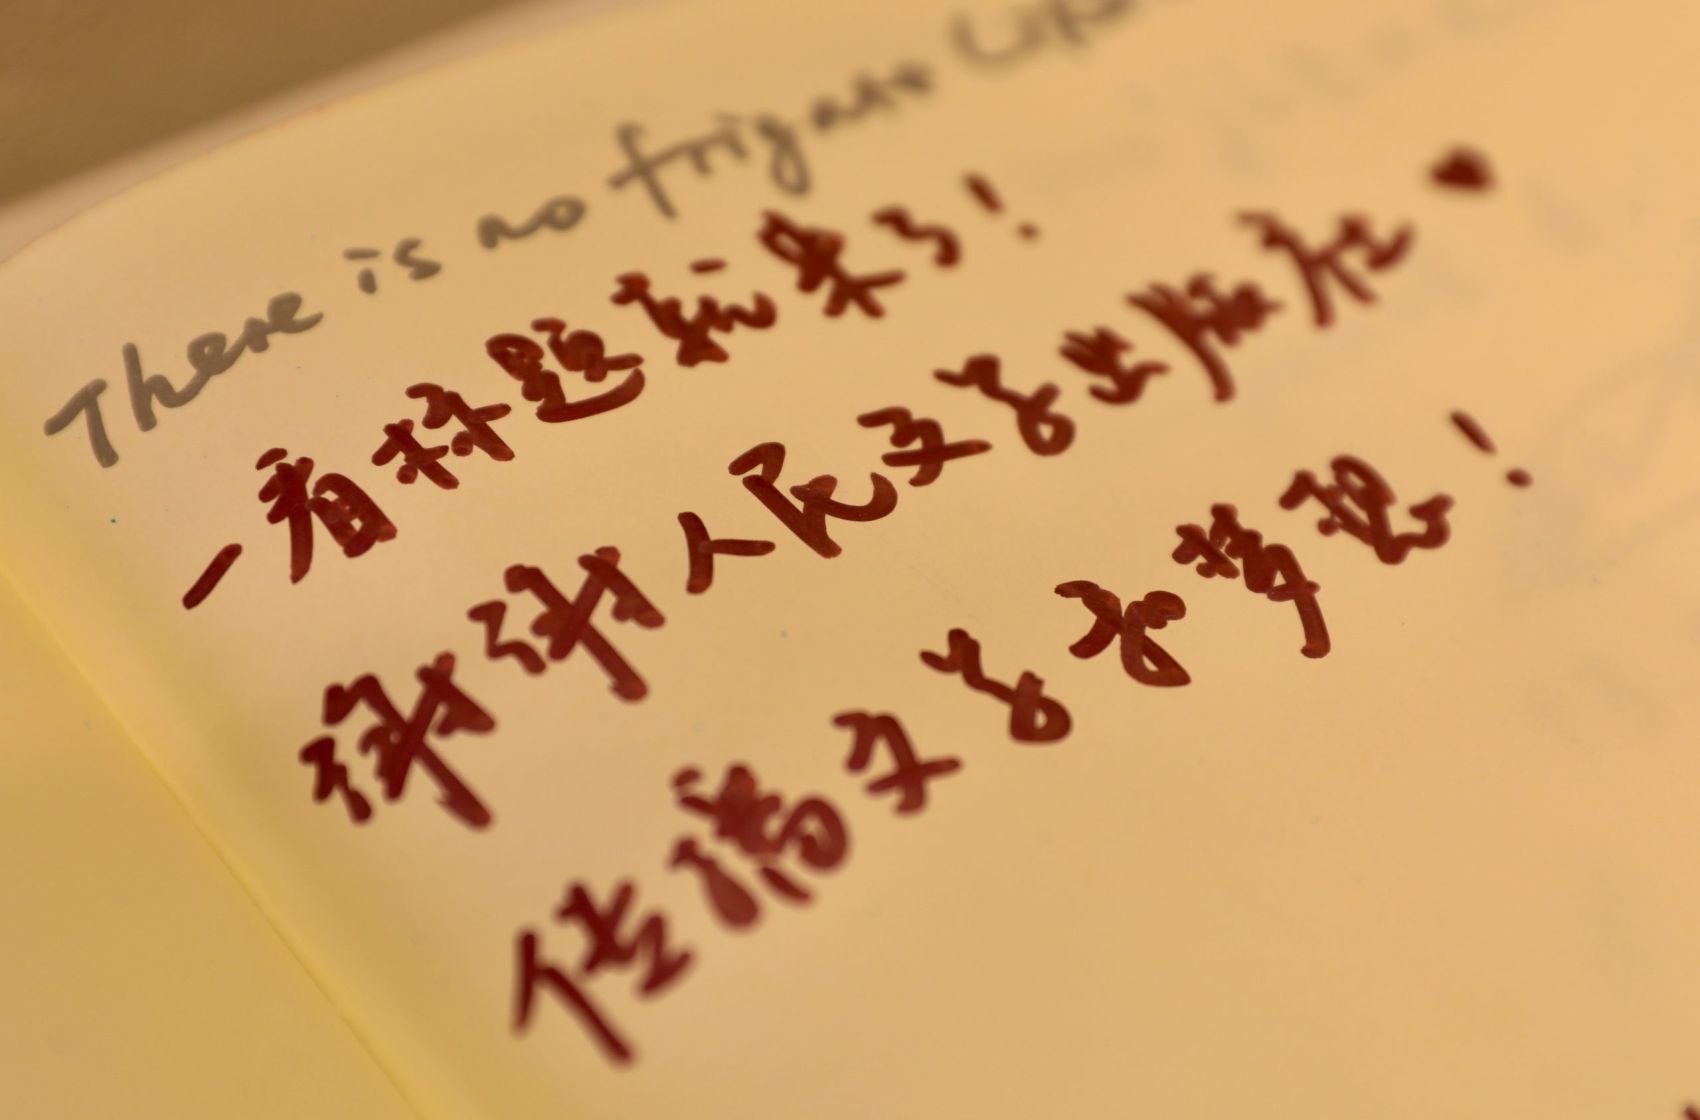 There is no frigate
一看标题就来了!
谢谢人民文学出版社♥
传播文学梦想!